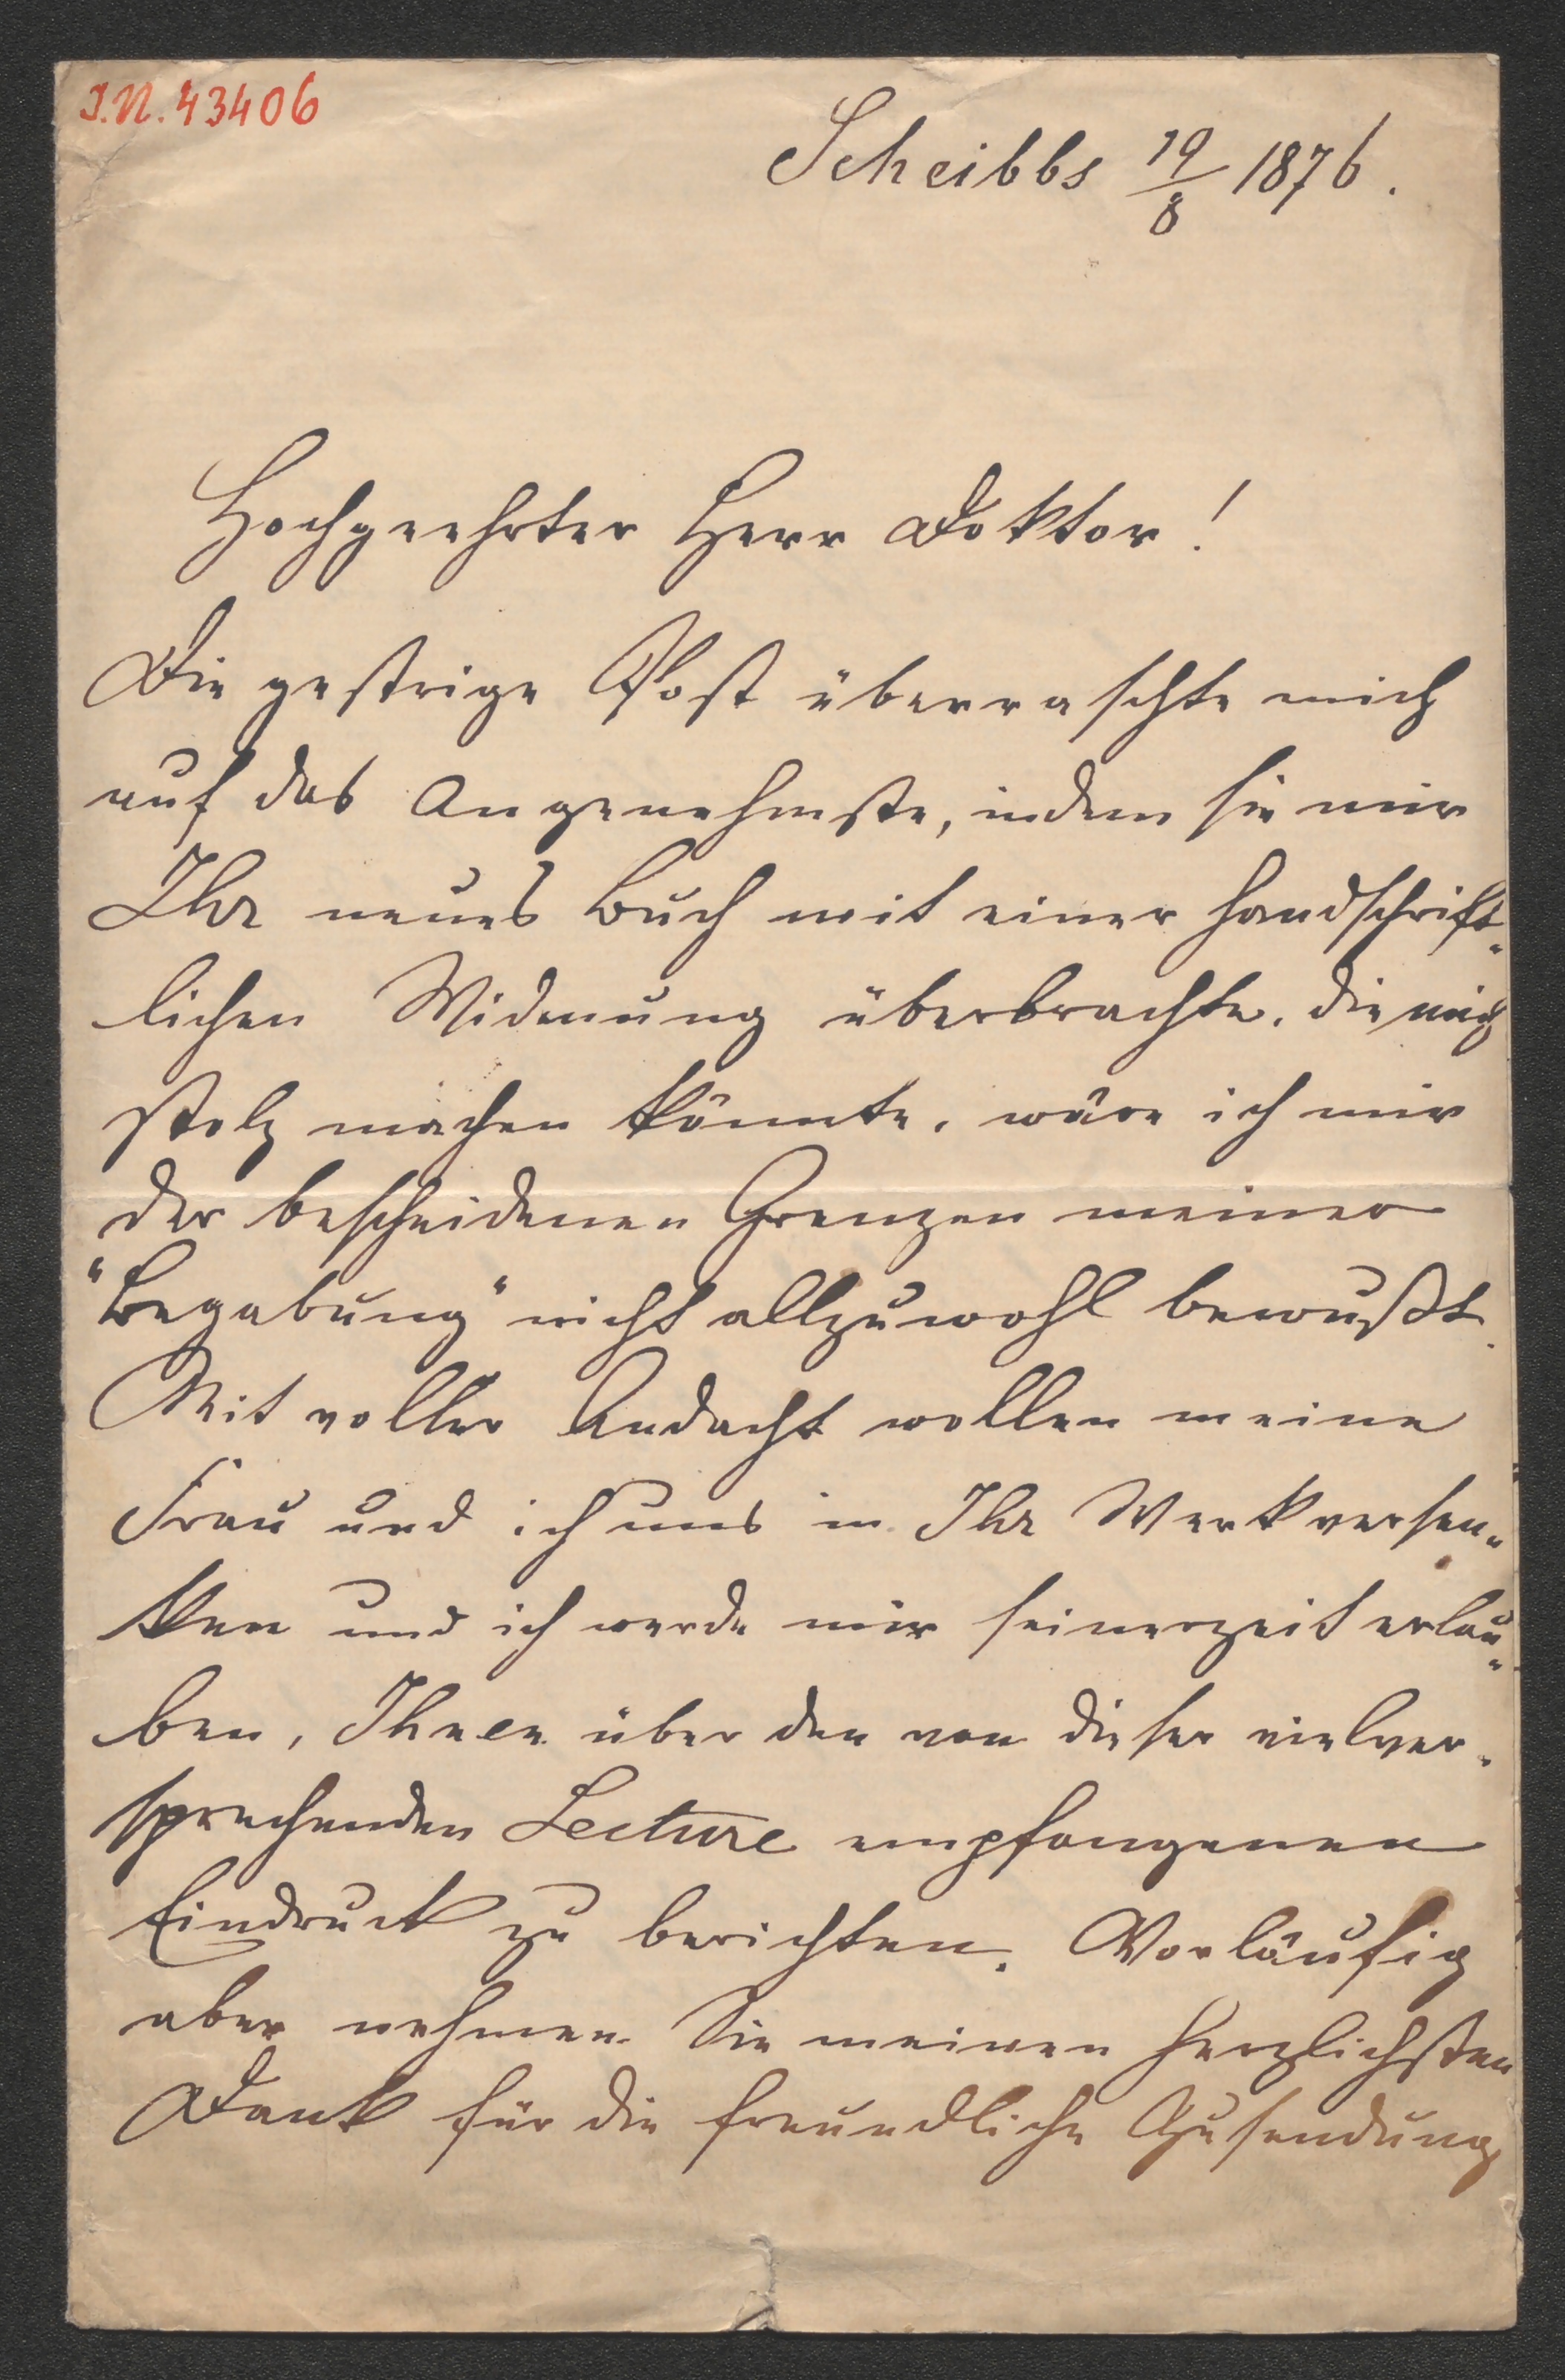 I.N. 43406
Scheibbs 19/8 1876.
Hochgeehrter Herr Doktor!
Die gestrige Post überraschte mich
auf das Angenehmste, indem sie mir
Ihr neues Buch mit einer handschrift-
lichen Widmung überbrachte, die mich
stolz machen könnte, wäre ich mir
der bescheidenen Grenzen meiner
"Begabung" nicht allzuwohl bewußt.
Mit voller Andacht wollen meine
Frau und ich uns in Ihr Werk versen-
ken und ich werde mir seinerzeit erlau-
ben, Ihnen über den von dieser vielver-
sprechenden Lecture empfangenen
Eindruck zu berichten. Vorläufig
aber nehmen Sie meinen herzlichsten
Dank für die freundliche Zusendung